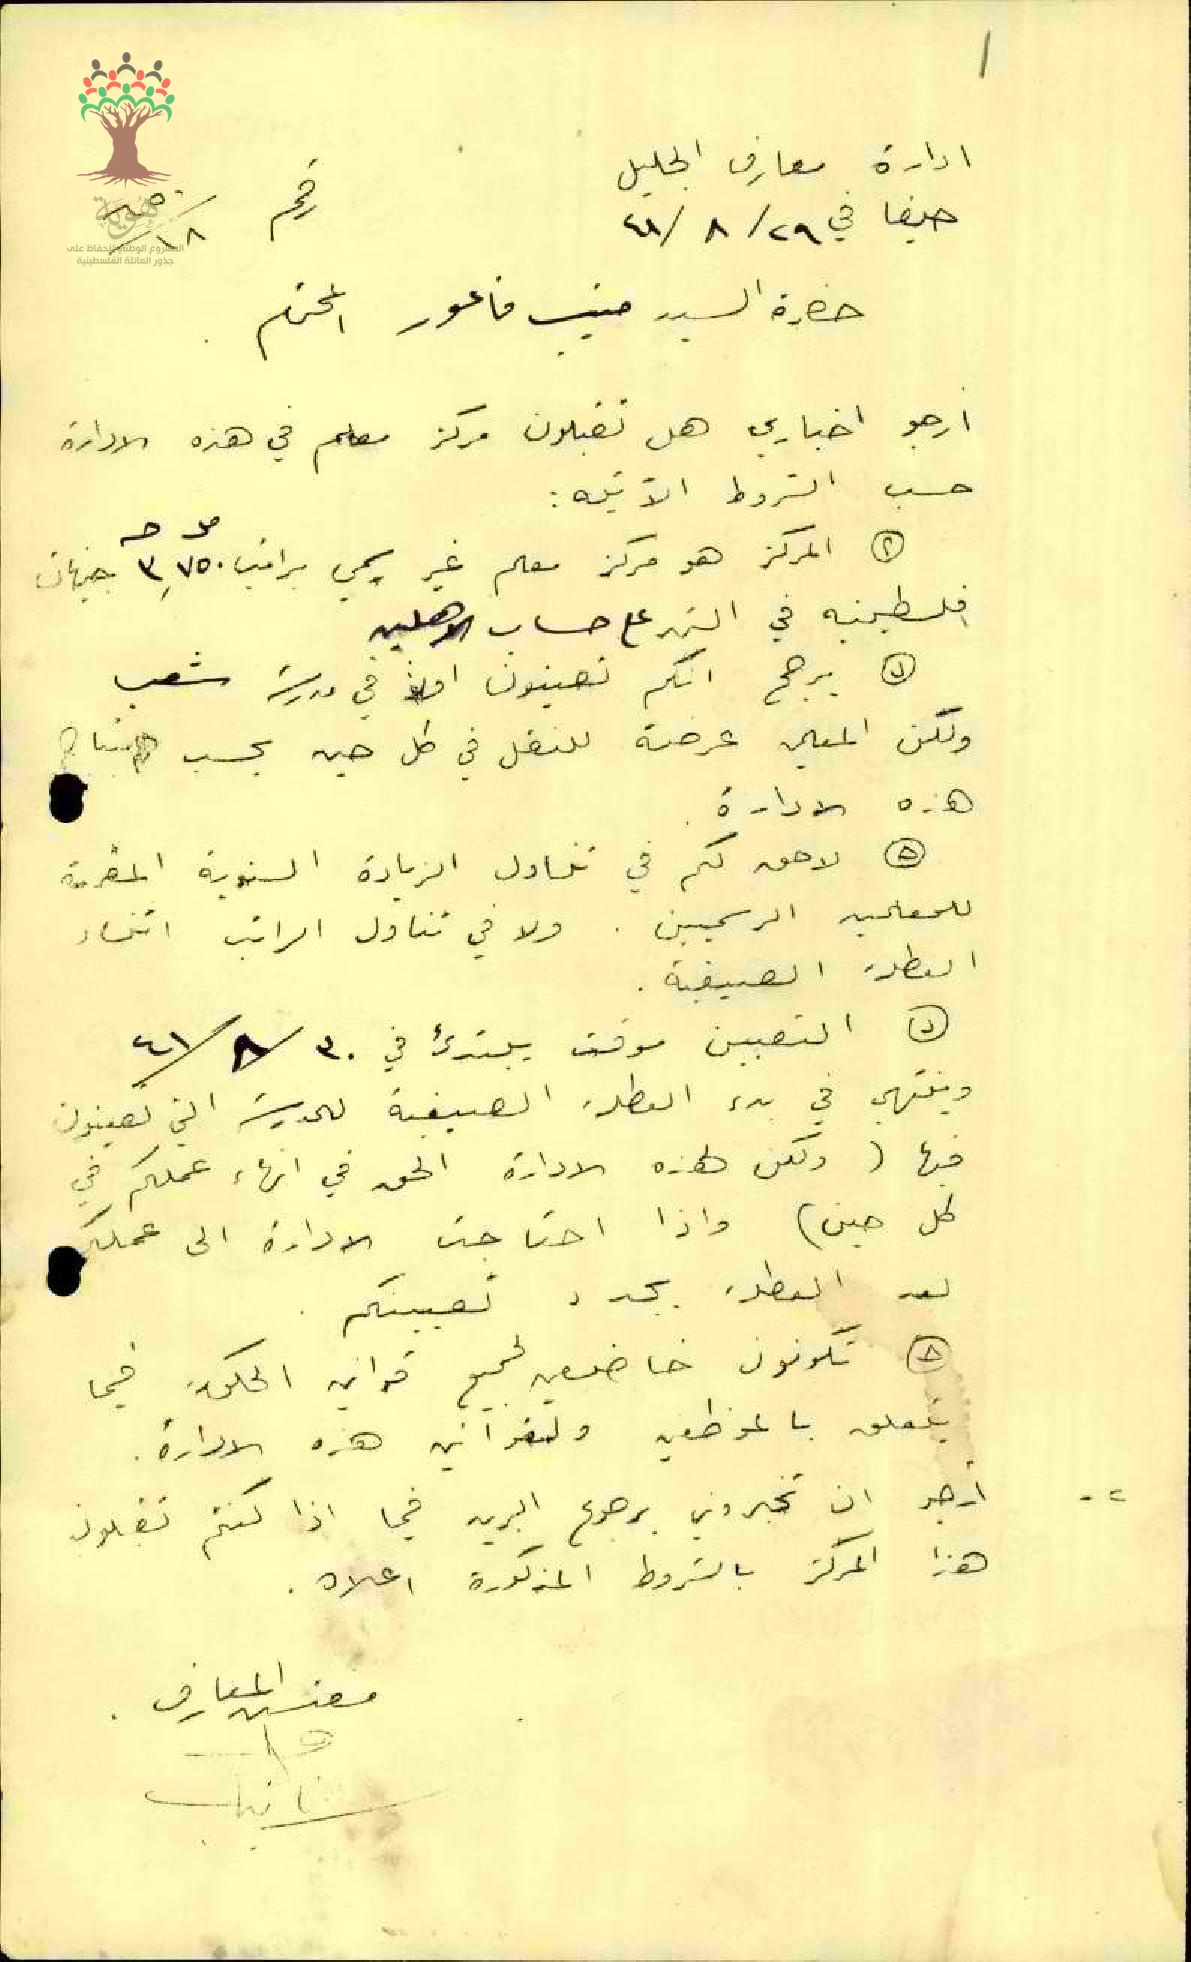 ١
ادارة معارف الجليل
حيفا في ٢٩/٨/٤١
رقم
هوية
المشروع الوطني للحفاظ على
جذور العائلة الفلسطينية
حضرة السيد منيب فاعور المحترم
أرجو اخباري هل تقبلون مركز معلم في هذه الادارة
حسب الشروط الآتية:
المركز هو مركز معلم غير رسمي براتب ٣,٧٥٠ جنيهات
فلسطينية في الشهر على حساب الاهلين
يرجح انكم تعينون اولاً في مدرسة شعب
ولكن المعلمين عرضة للنقل في كل حين بحسب
هذه الادارة
لا حق لكم في تناول الزيادة السنوية المقررة
للمعلمين الرسميين . ولا في تناول الراتب اثناء
العطلة الصيفية .
التعيين موقت يبتدئ في ٣٠/٨/٤١
وينتهي في بدء العطلة الصيفية للمدرسة التي تعينون
فيها ( ولكن لهذه الادارة الحق في انهاء عملكم في
كل حين) واذا احتاجت الادارة الى عملكم
بعد العطلة يجدد تعيينكم .
تكونون خاضعين لجميع قوانين الحكومة فيما
يتعلق بالموظفين ولقوانين هذه الادارة .
٢- أرجو ان تخبروني برجوع البريد فيما اذا كنتم تقبلون
هذا المركز بالشروط المذكورة اعلاه .
مفتش المعارف .